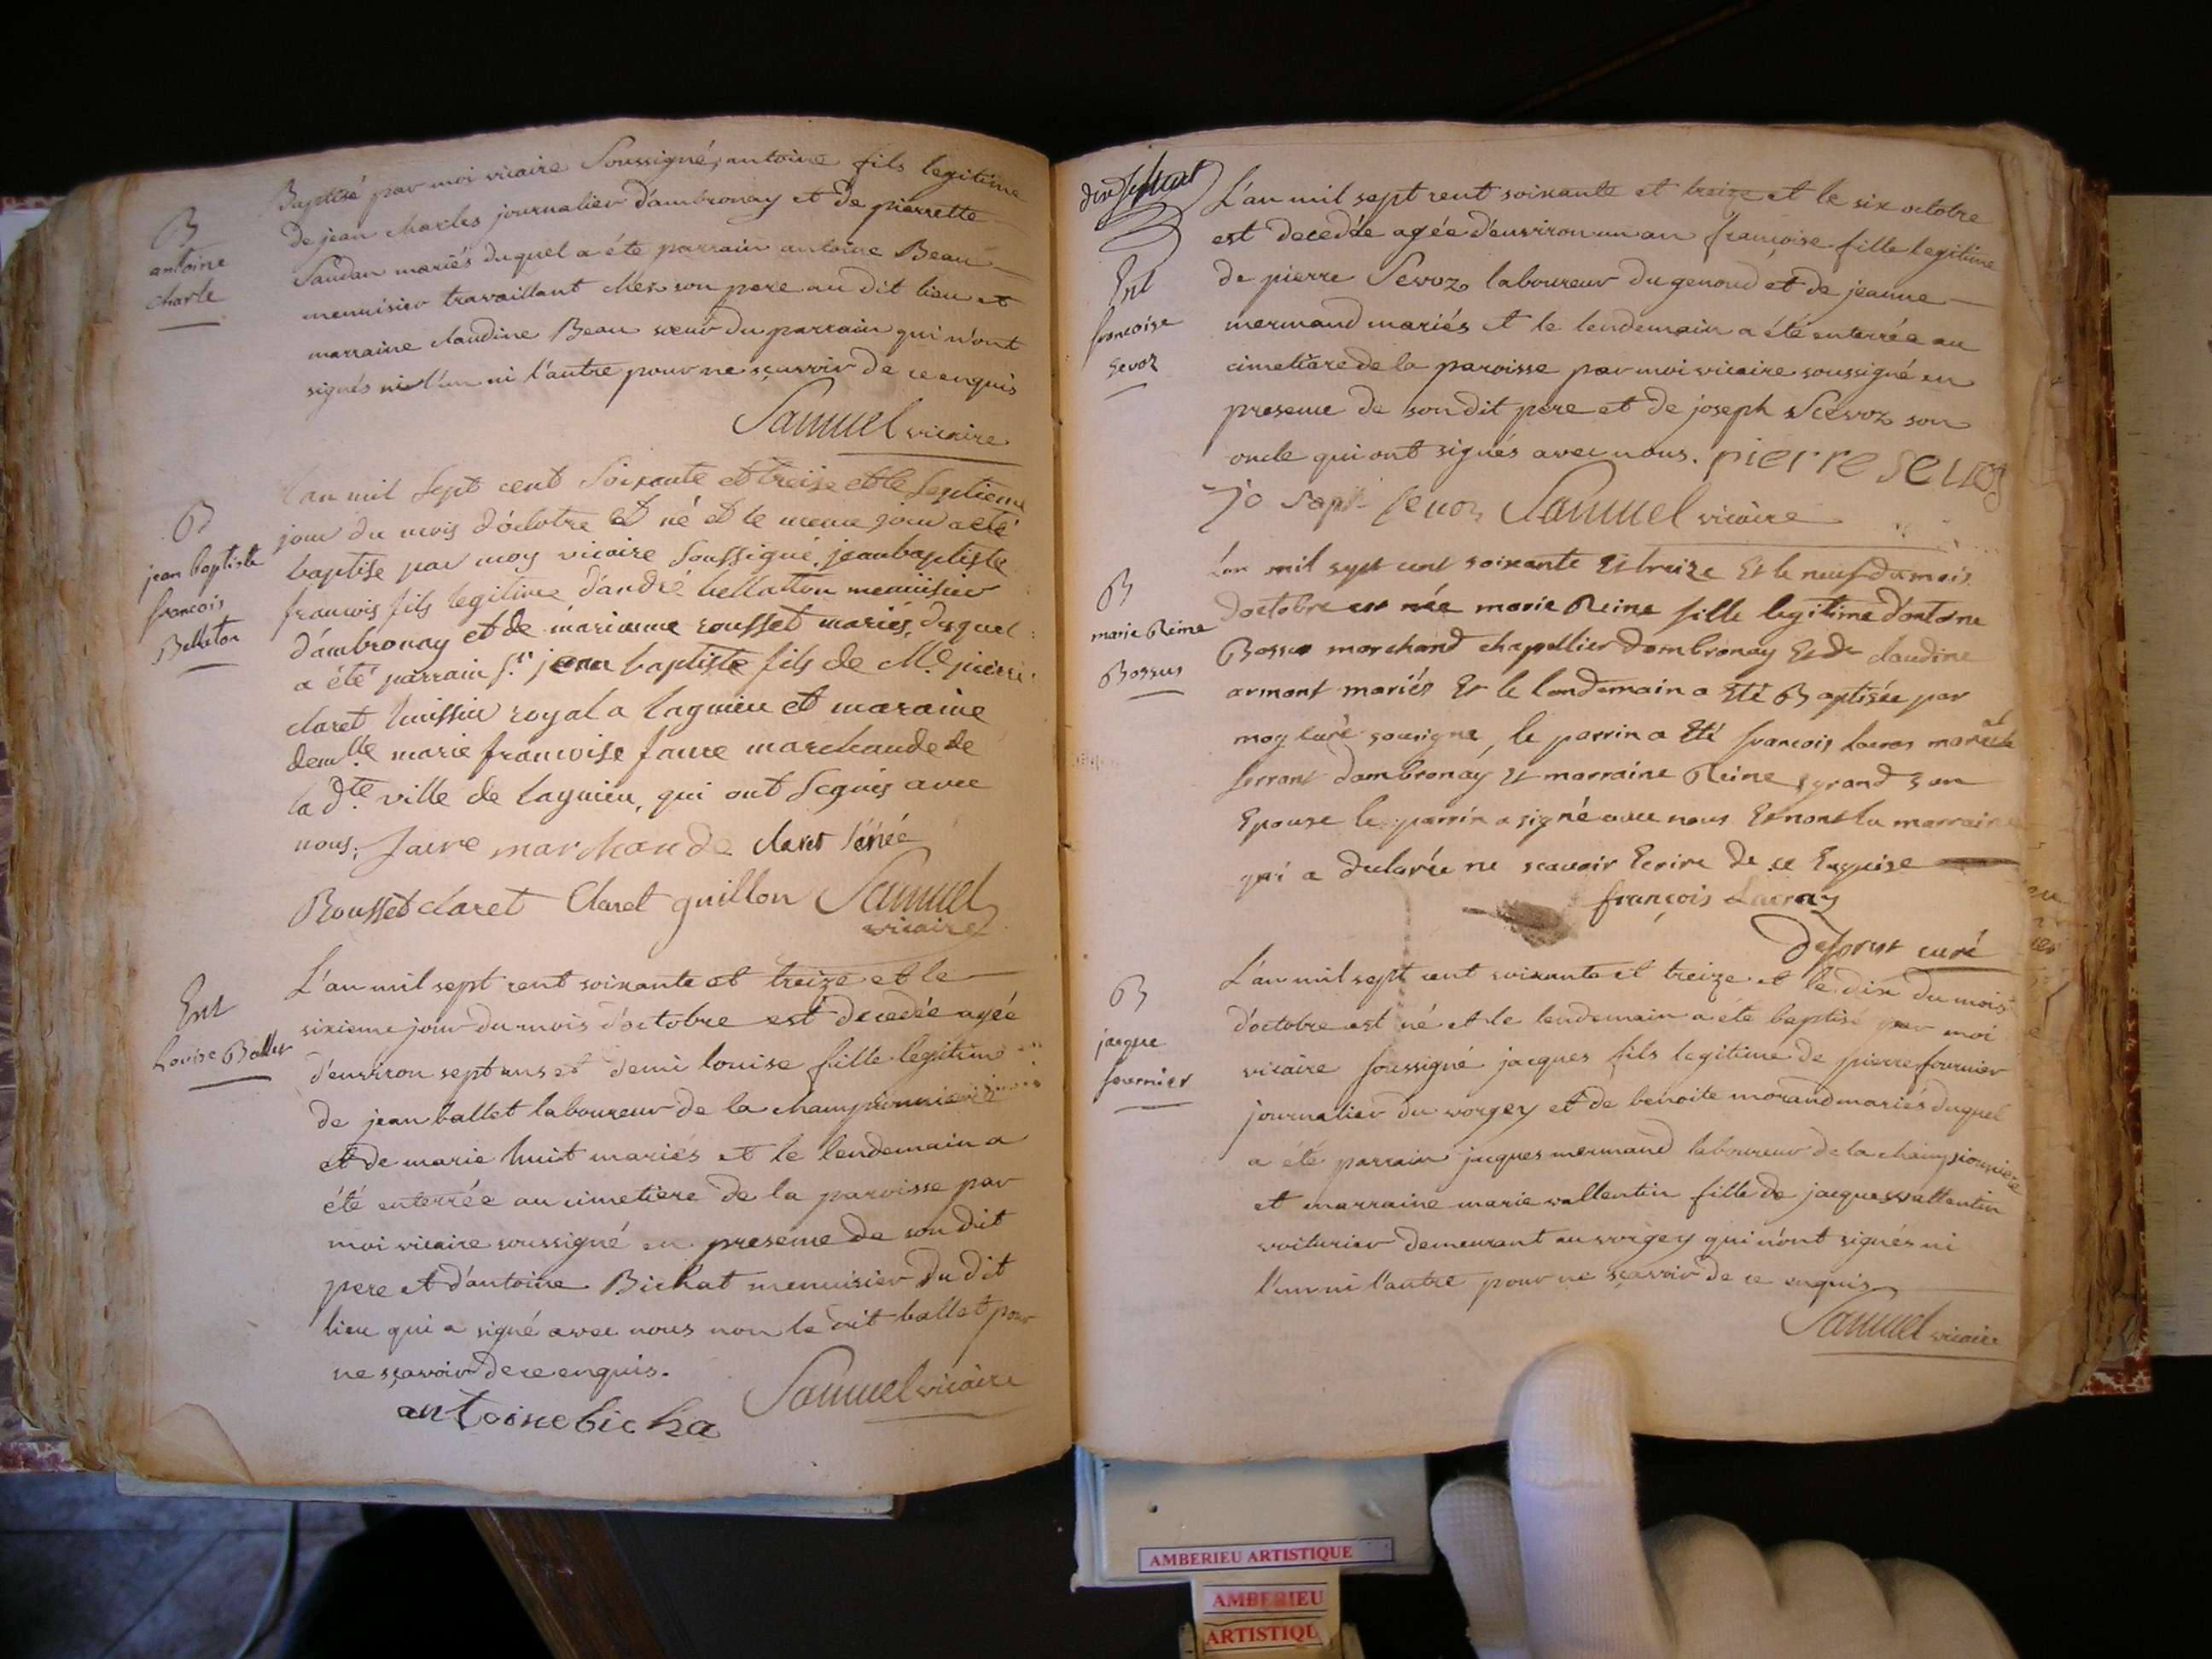 B
antoine
charle
Baptisé par moi vicaire Soussigné, antoine fils legitime
de jean charles journalier d'ambronay et de pierrette
Saudan mariés duquel a été parrain antoine Beau
menuisier travaillant chez son pere au dit lieu et
marraine claudine Beau sœur du parrain qui n'ont
signés ni l'un ni l'autre pour ne sçavoir de ce enquis
Samuel vicaire
B
jean baptiste
francois
Belleton
l'an mil Sept cent Soixante et treise et le Septieme
jour du mois d'octobre Est né et le meme jour a eté
baptise par moy vicaire Soussigné, jean baptiste
francois fils legitime d'andré bellatton menuisier
d'ambronay et de marianne rousset mariés, duquel
a été parrain Sr. jean baptiste fils de Me. pierre
claret huissier royal a lagnieu et maraine
demlle marie francoise faure marchande de
la dte. ville de lagnieu, qui ont Signés avec
nous. faure marchande claret
Rousset claret Claret guillon Samuel
vicaire
Ent
Louise Ballet
L'an mil sept cent soixante et treize et le
sixieme jour du mois d'octobre est decedée agée
d'environ sept ans et demi louise fille legitime
de jean ballet laboureur de la championniere
et de marie huit mariés et le lendemain a
été enterrée au cimetiere de la paroisse par
moi vicaire soussigné en presence de son dit
pere et d'antoine Bichat menuisier du dit
lieu qui a signé avec nous non le dit ballet pour
ne sçavoir de ce enquis.
antoine bicha Samuel vicaire
dix sept
Ent
francoise
Sevoz
L'an mil sept cent soixante et treize et le six octobre
est decedée agée d'environ un an françoise fille legitime
de pierre Sevoz laboureur du genoud et de jeanne
mermand mariés et le lendemain a été enterrée au
cimetiere de la paroisse par moi vicaire soussigné en
presence de son dit pere et de joseph Scevoz son
oncle qui ont signés avec nous. pierre sevoz
jo sept sevoz Samuel vicaire
B
marie Reine
Bossus
L'an mil sept cent soixante Et treize Et le neuf du mois
d'octobre est née marie Reine fille legitime d'antoine
Bossu marchand chapellier d'ambronay Et de claudine
armant mariés Et le landemain a Eté Baptisée par
moy curé sousigné, le parrin a Eté francois Lacras marechal
ferrant d'ambronay Et marraine Reine grand son
Epouse le parrin a signé avec nous Et non la marraine
qui a declarée ne scavoir Ecrire de ce Enquise
françois Lacras
curé
B
jacque
fournier
L'an mil sept cent soixante et treize et le dix du mois
d'octobre est né et le lendemain a été baptisé par moi
vicaire soussigné jacques fils legitime de pierre fournier
journalier du vorgey et de benoite morand mariés duquel
a été parrain jacques mermand laboureur de la championniere
et marraine marie vallentin fille de jacques vallentin
voiturier demeurant au vorgey qui n'ont signés ni
l'un ni l'autre pour ne sçavoir de ce enquis
Samuel vicaire
AMBERIEU ARTISTIQUE
AMBERIEU
ARTISTIQU